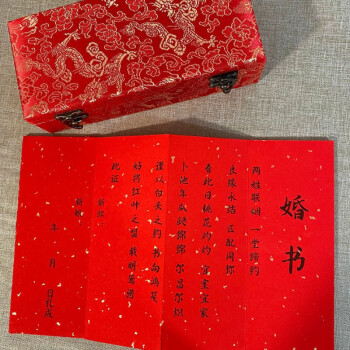 婚书
两姓联姻 一堂缔约
良缘永结 匹配同称
看此日桃花灼灼 宜室宜家
卜他年瓜瓞绵绵 尔昌尔炽
谨以白头之约 书向鸿笺
好将红叶之盟 载明鸳谱
此证
新郎
新娘
年 月 日礼成